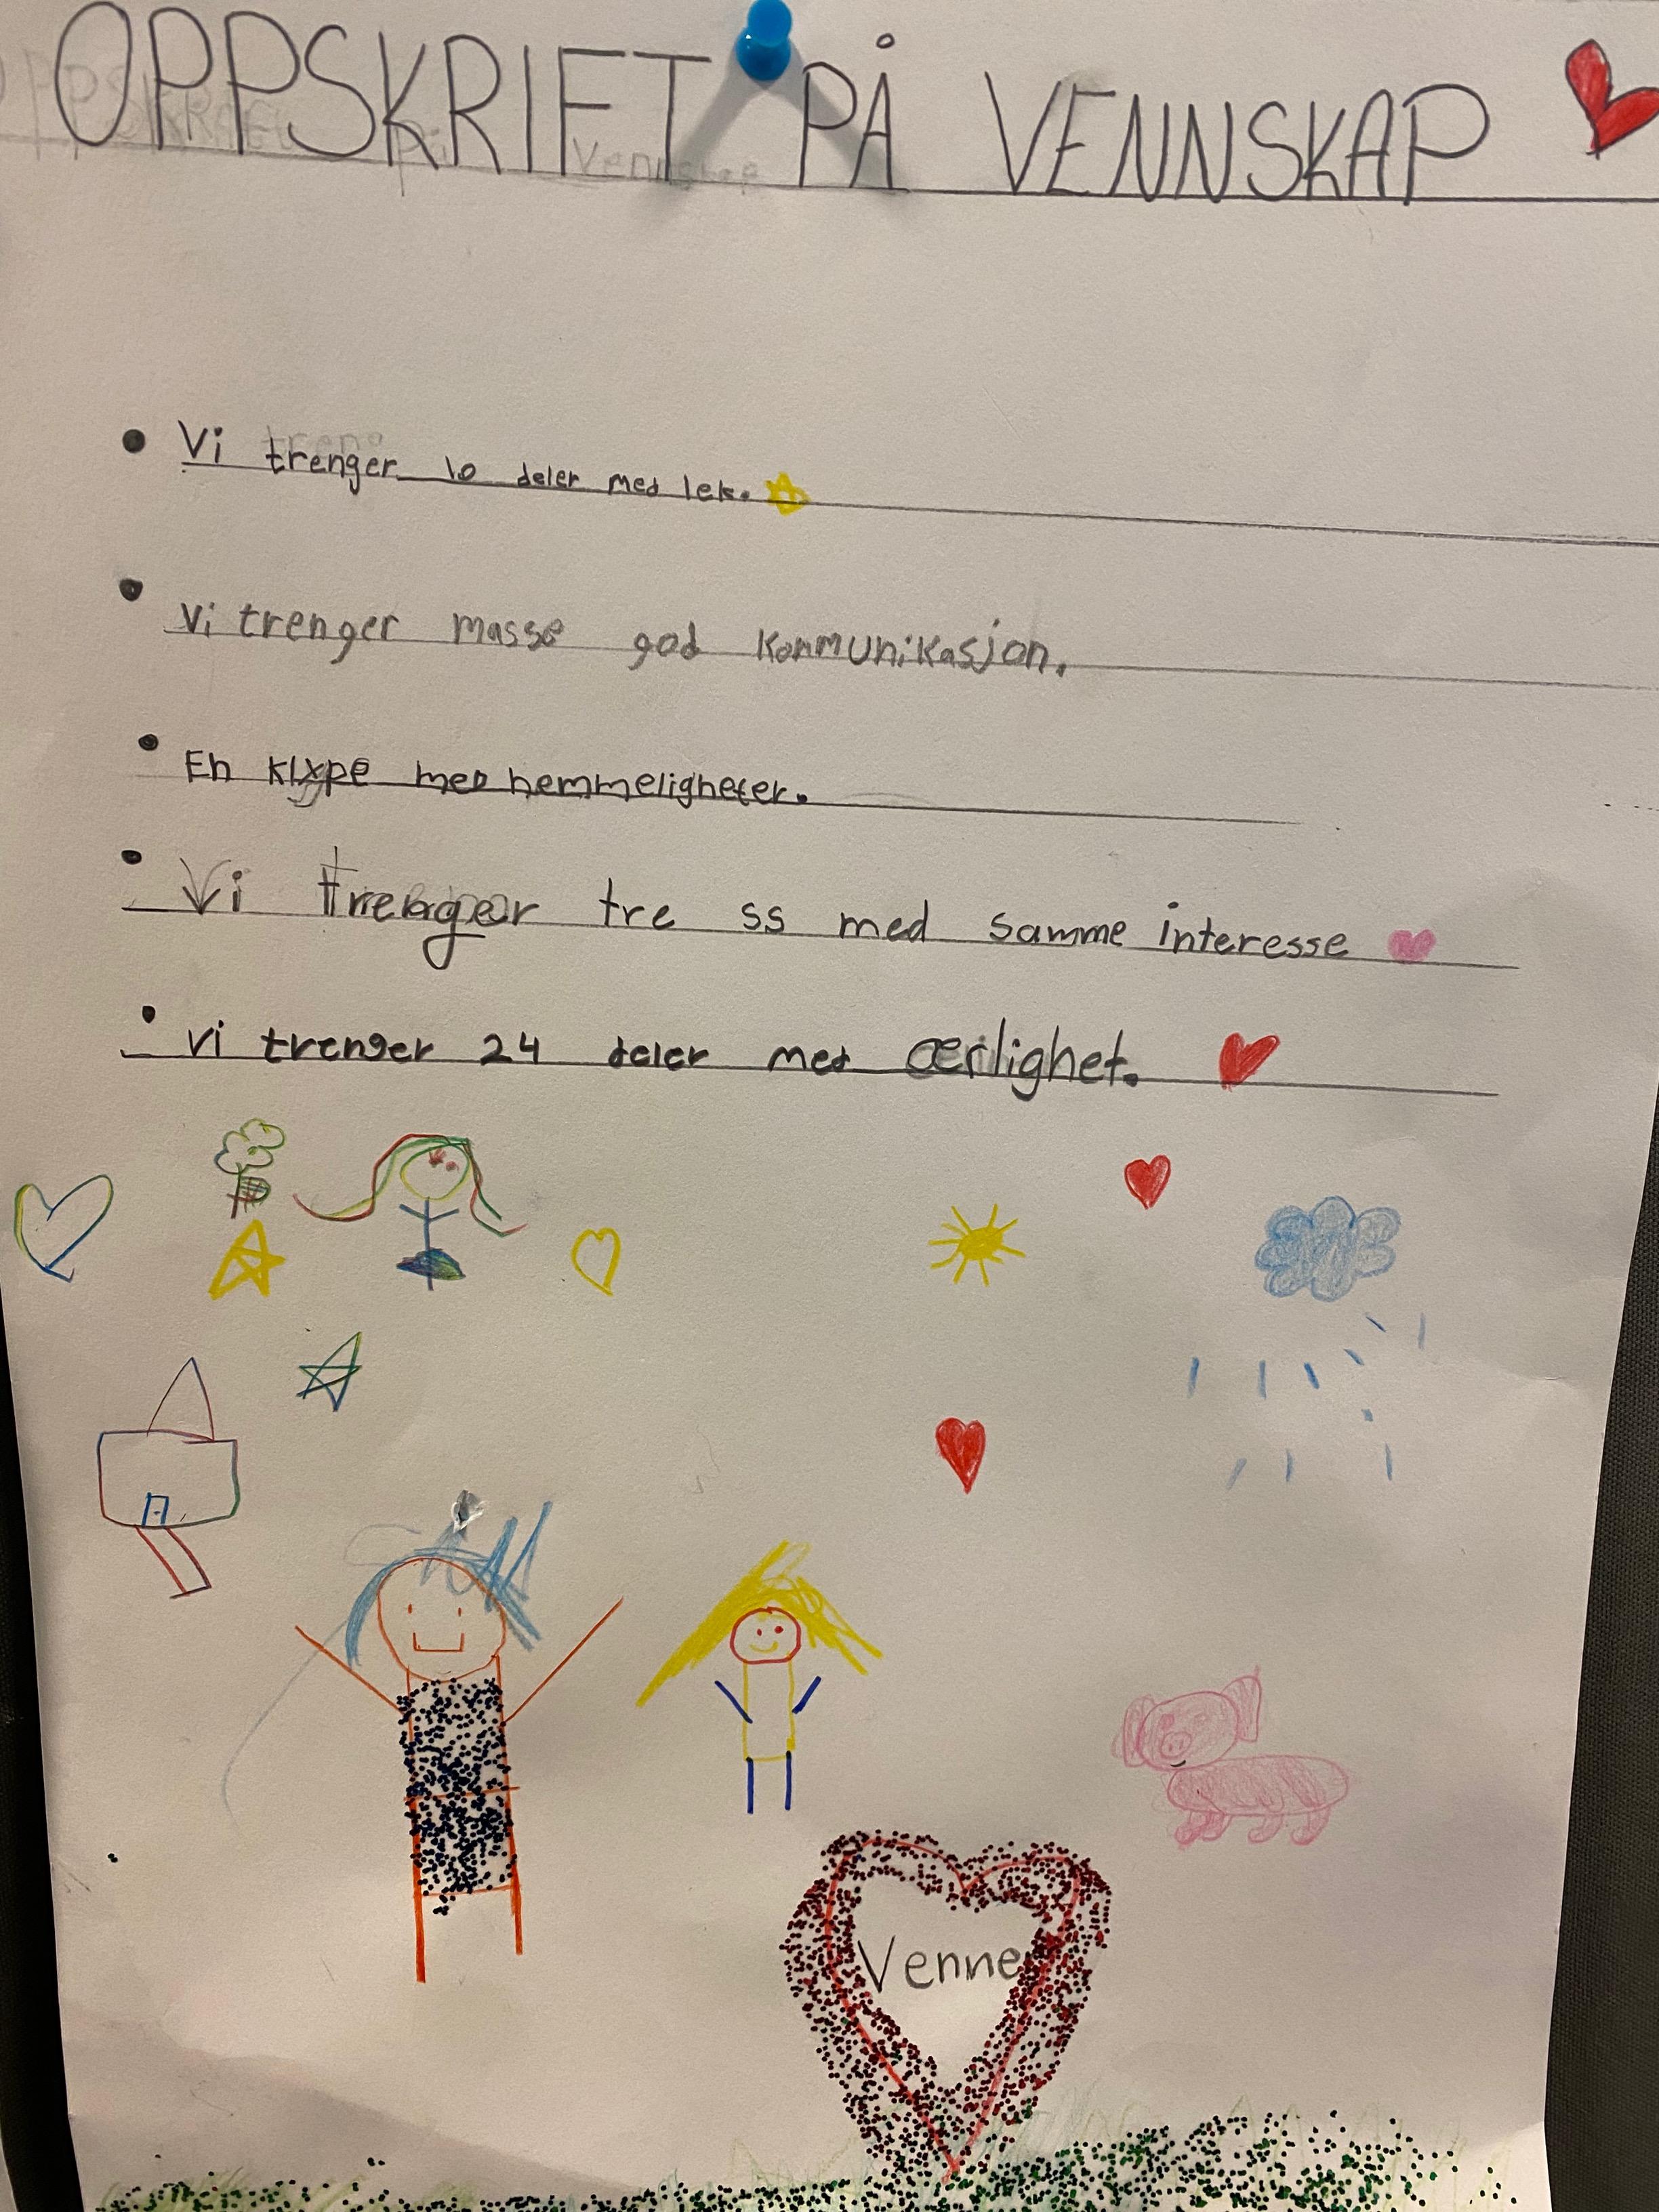 OPPSKRIFT PÅ VENNSKAP
• Vi trenger 10 deler med lek.
• Vi trenger masse god kommunikasjon.
• En klype med hemmeligheter.
• Vi trenger tre ss med samme interesse
• Vi trenger 24 deler med ærlighet.
Venner